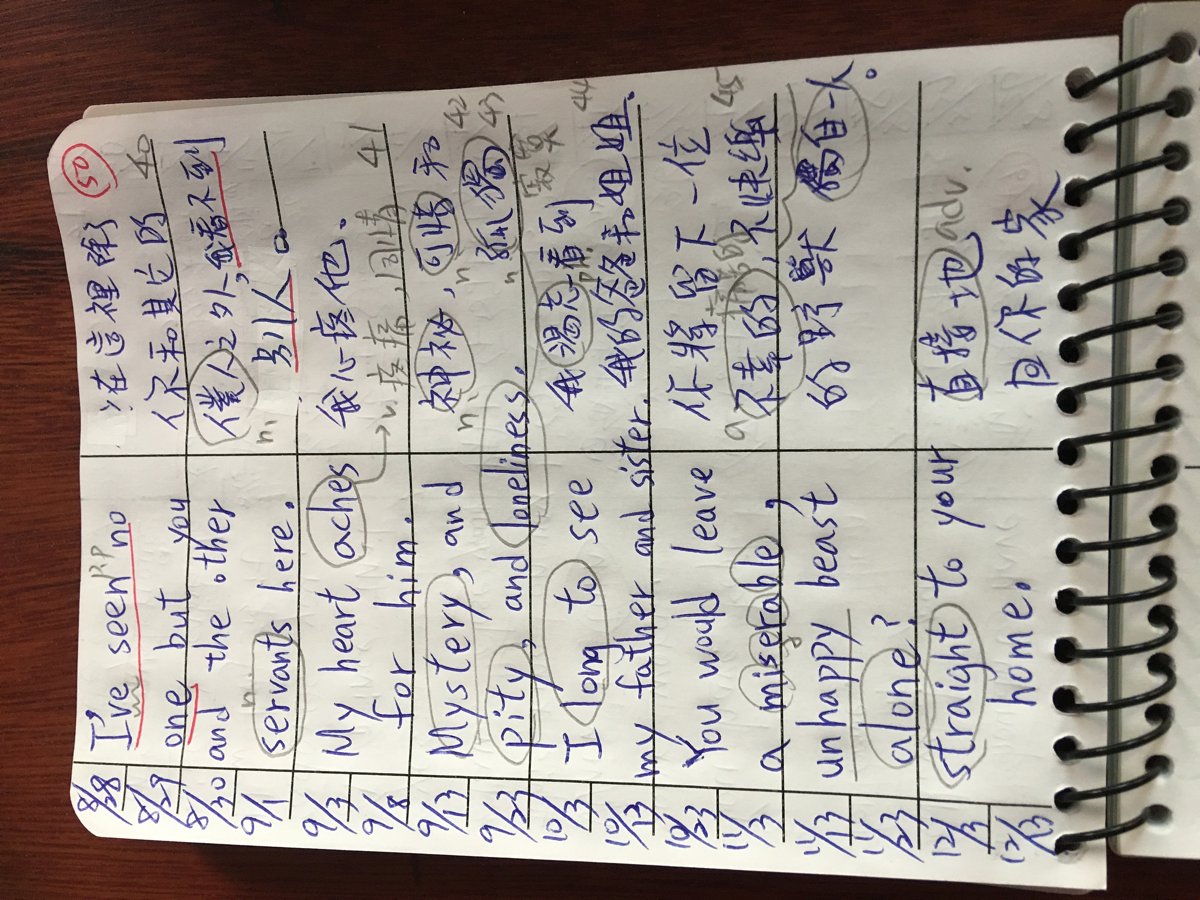 50
8/28
8/29
8/30
9/1
9/3
9/8
9/13
9/23
10/3
10/13
10/23
11/3
11/13
11/23
12/3
12/13
I've seen no
P.P
one but you
and the other
n
servants here.
My heart aches
for him.
Mystery, and
pity, and loneliness.
I long to see
my father and sister.
You would leave
a miserable,
unhappy beast
alone?
straight to your
home.
在這裡除了 40
你和其它的
僕人之外,我看不到
n.
別人。
我心疼他.
v. 疼痛, 41
神祕, 可惜 和 42
n. n
孤獨 43
n 寂寞
我渴忘看到 44
我的爸爸和姐姐.
你將留下一位
不幸的,不快樂 45
a
的野獸 獨自一人。
直接地 adv.
回你的家